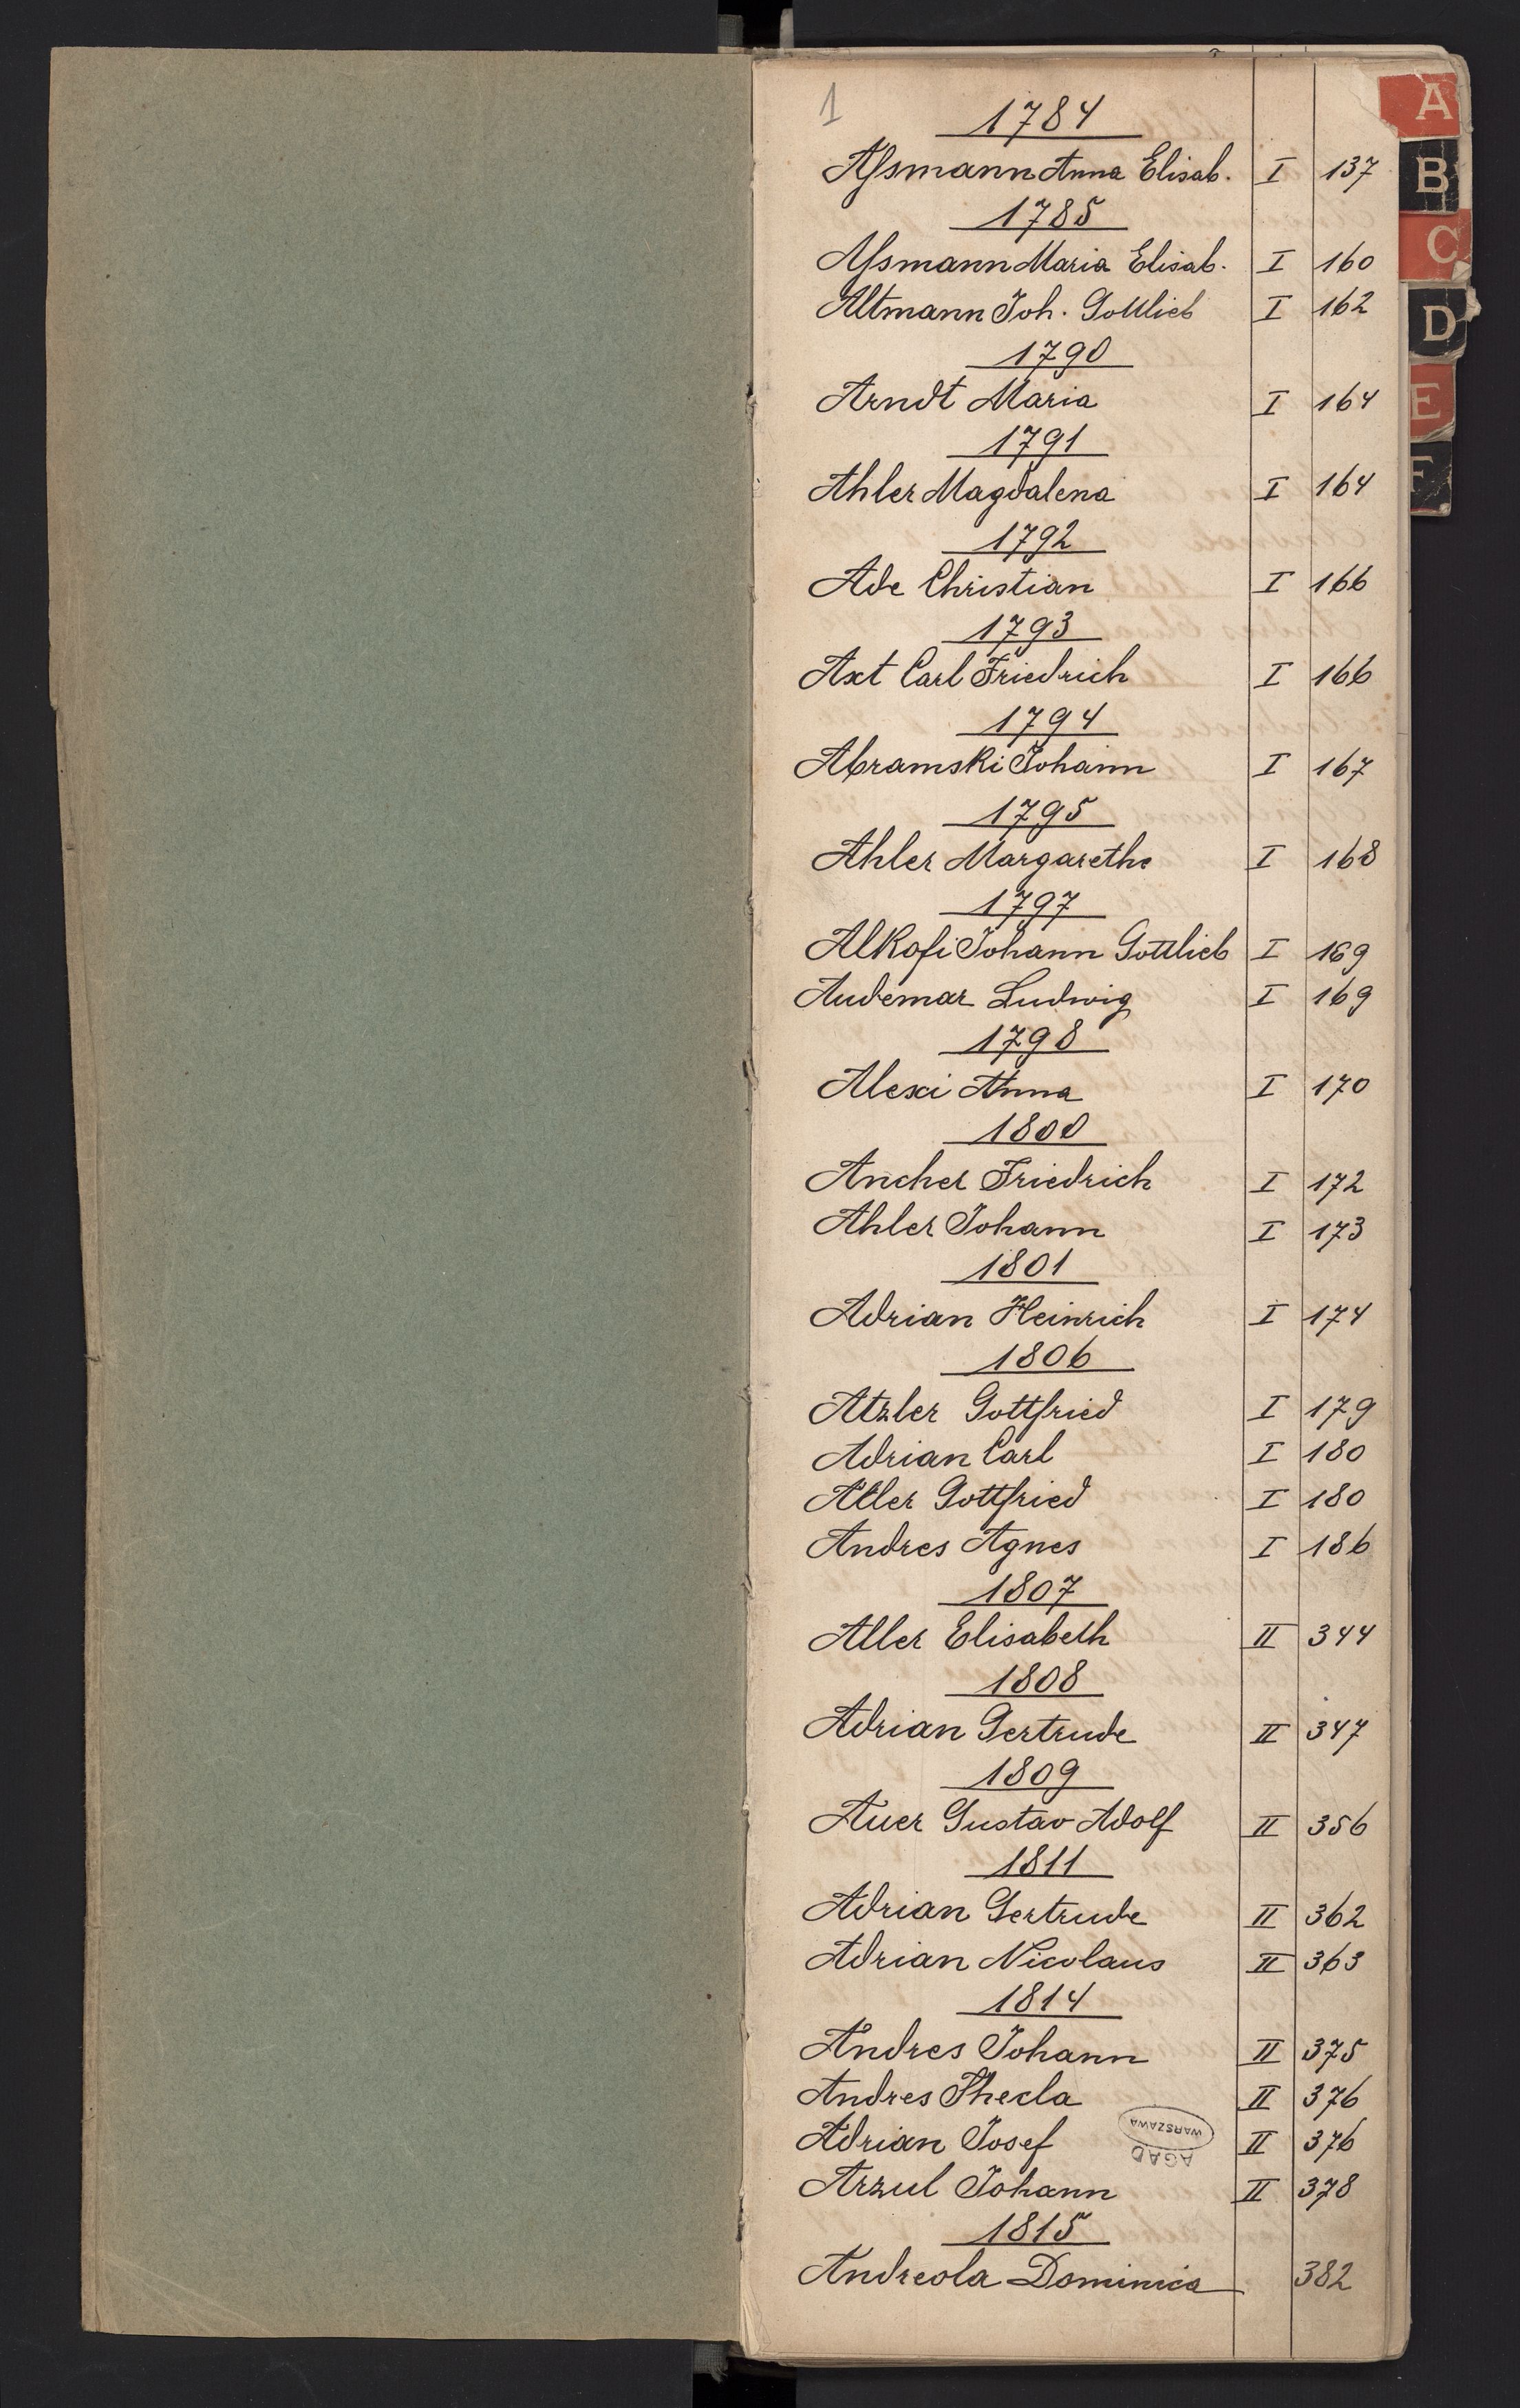 1
1784
Aſsmann Anna Elisab. I 137
1785
Aſsmann Maria Elisab. I 160
Altmann Joh. Gottlieb I 162
1790
Arndt Maria I 164
1791
Ahler Magdalena I 164
1792
Ade Christian I 166
1793
Axt Carl Friedrich I 166
1794
Abramski Johann I 167
1795
Ahler Margarethe I 168
1797
Alkofi Johann Gottlieb I 169
Audemar Ludwig I 169
1798
Alexi Anna I 170
1800
Ancher Friedrich I 172
Ahler Johann I 173
1801
Adrian Heinrich I 174
1806
Atzler Gottfried I 179
Adrian Carl I 180
Aller Gottfried I 180
Andres Agnes I 186
1807
Aller Elisabeth II 344
1808
Adrian Gertrude II 347
1809
Auer Gustav Adolf II 356
1811
Adrian Gertrude II 362
Adrian Nicolaus II 363
1814
Andres Johann II 375
Andres Thecla II 376
Adrian Josef II 376
Arzul Johann II 378
1815
Andreola Dominica 382
AGAD
WARSZAWA
A
B
C
D
E
F